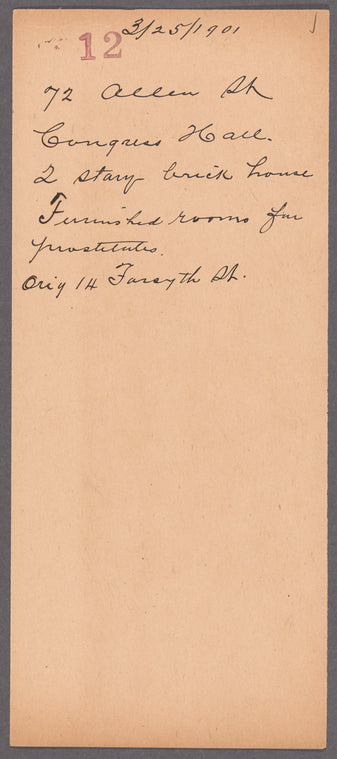 12 3/25/1901
72 Allen St
Congress Hall.
2 story brick house
Furnished rooms for
prostitutes.
Orig 14 Forsyth St.